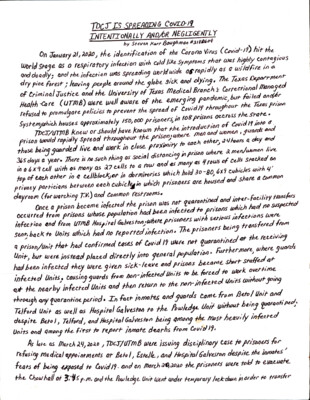 TDCJ IS SPREADING COVID19
INTENTIONALLY AND/OR NEGLIGENTLY
by Steven Kurt Baughman
On January 21, 2020, the identification of the Corona Virus (Covid-19) hit the
world stage as a respiratory infection with cold like symptoms that was highly contagious
and deadly; and the infection was spreading worldwide as rapidly as a wildfire in a
dry pine forest; having people around the globe sick and dying. The Texas Department
of Criminal Justice and the University of Texas Medical Branch's Correctional Managed
Health Care (UTMB) were well aware of the emerging pandemic, but failed and/or
refused to promulgate policies to prevent the spread of Covid19 throughout the Texas prison
System, which houses approximately 150,000 prisoners, in 108 prisons across the state.
TDCJ/UTMB knew or should have known that the introduction of Covid19 into a
prison would rapidly spread throughout the prison, where men and women, guards and
those being guarded live and work in close proximity to each other, 24 hours a day and
365 days a year. There is no such thing as social distancing in prison where 2 men/women live
in a 6x9 cell with as many as 27 cells to a row and as many as 4 rows of cells stacked on
top of each other in a cellblock, or in dormitories which hold 50-80, 6x5 cubicles with 4'
privacy partitions between each cubicle, in which prisoners are housed and share a common
dayroom (for watching TV) and common restrooms.
Once a prison became infected the prison was not quarantined and inter-facility transfers
occurred from prisons whose population had been infected to prisons which had no suspected
infection and from UTMB Hospital Galveston, where prisoners with various infections were
sent back to Units which had no reported infection. The prisoners being transfered from
a prison/Unit that had confirmed cases of Covid19 were not quarantined at the receiving
Unit, but were instead placed directly into general population. Furthermore, where guards
had been infected they were given sick-leave and prisons became short staffed at
infected Units, causing guards from non-infected Units to be forced to work overtime
at the nearby infected Units and then return to the non-infected Units without going
through any quarantine period. In fact inmates and guards came from Beto1 Unit and
Telford Unit as well as Hospital Galveston to the Powledge Unit without being quarantined;
despite Beto1, Telford, and Hospital Galveston being among the most heavily infected
Units and among the first to report inmate deaths from Covid19.
As late as March 24, 2020, TDCJ/UTMB were issuing disciplinary case to prisoners for
refusing medical appointments at Beto1, Estelle, and Hospital Galveston despite the inmates'
fears of being exposed to Covid19. and on March 2020 the prisoners were told to evacuate
the Chowhall at 3:45 p.m. and the Powledge Unit went under temporary lockdown in order to transfer